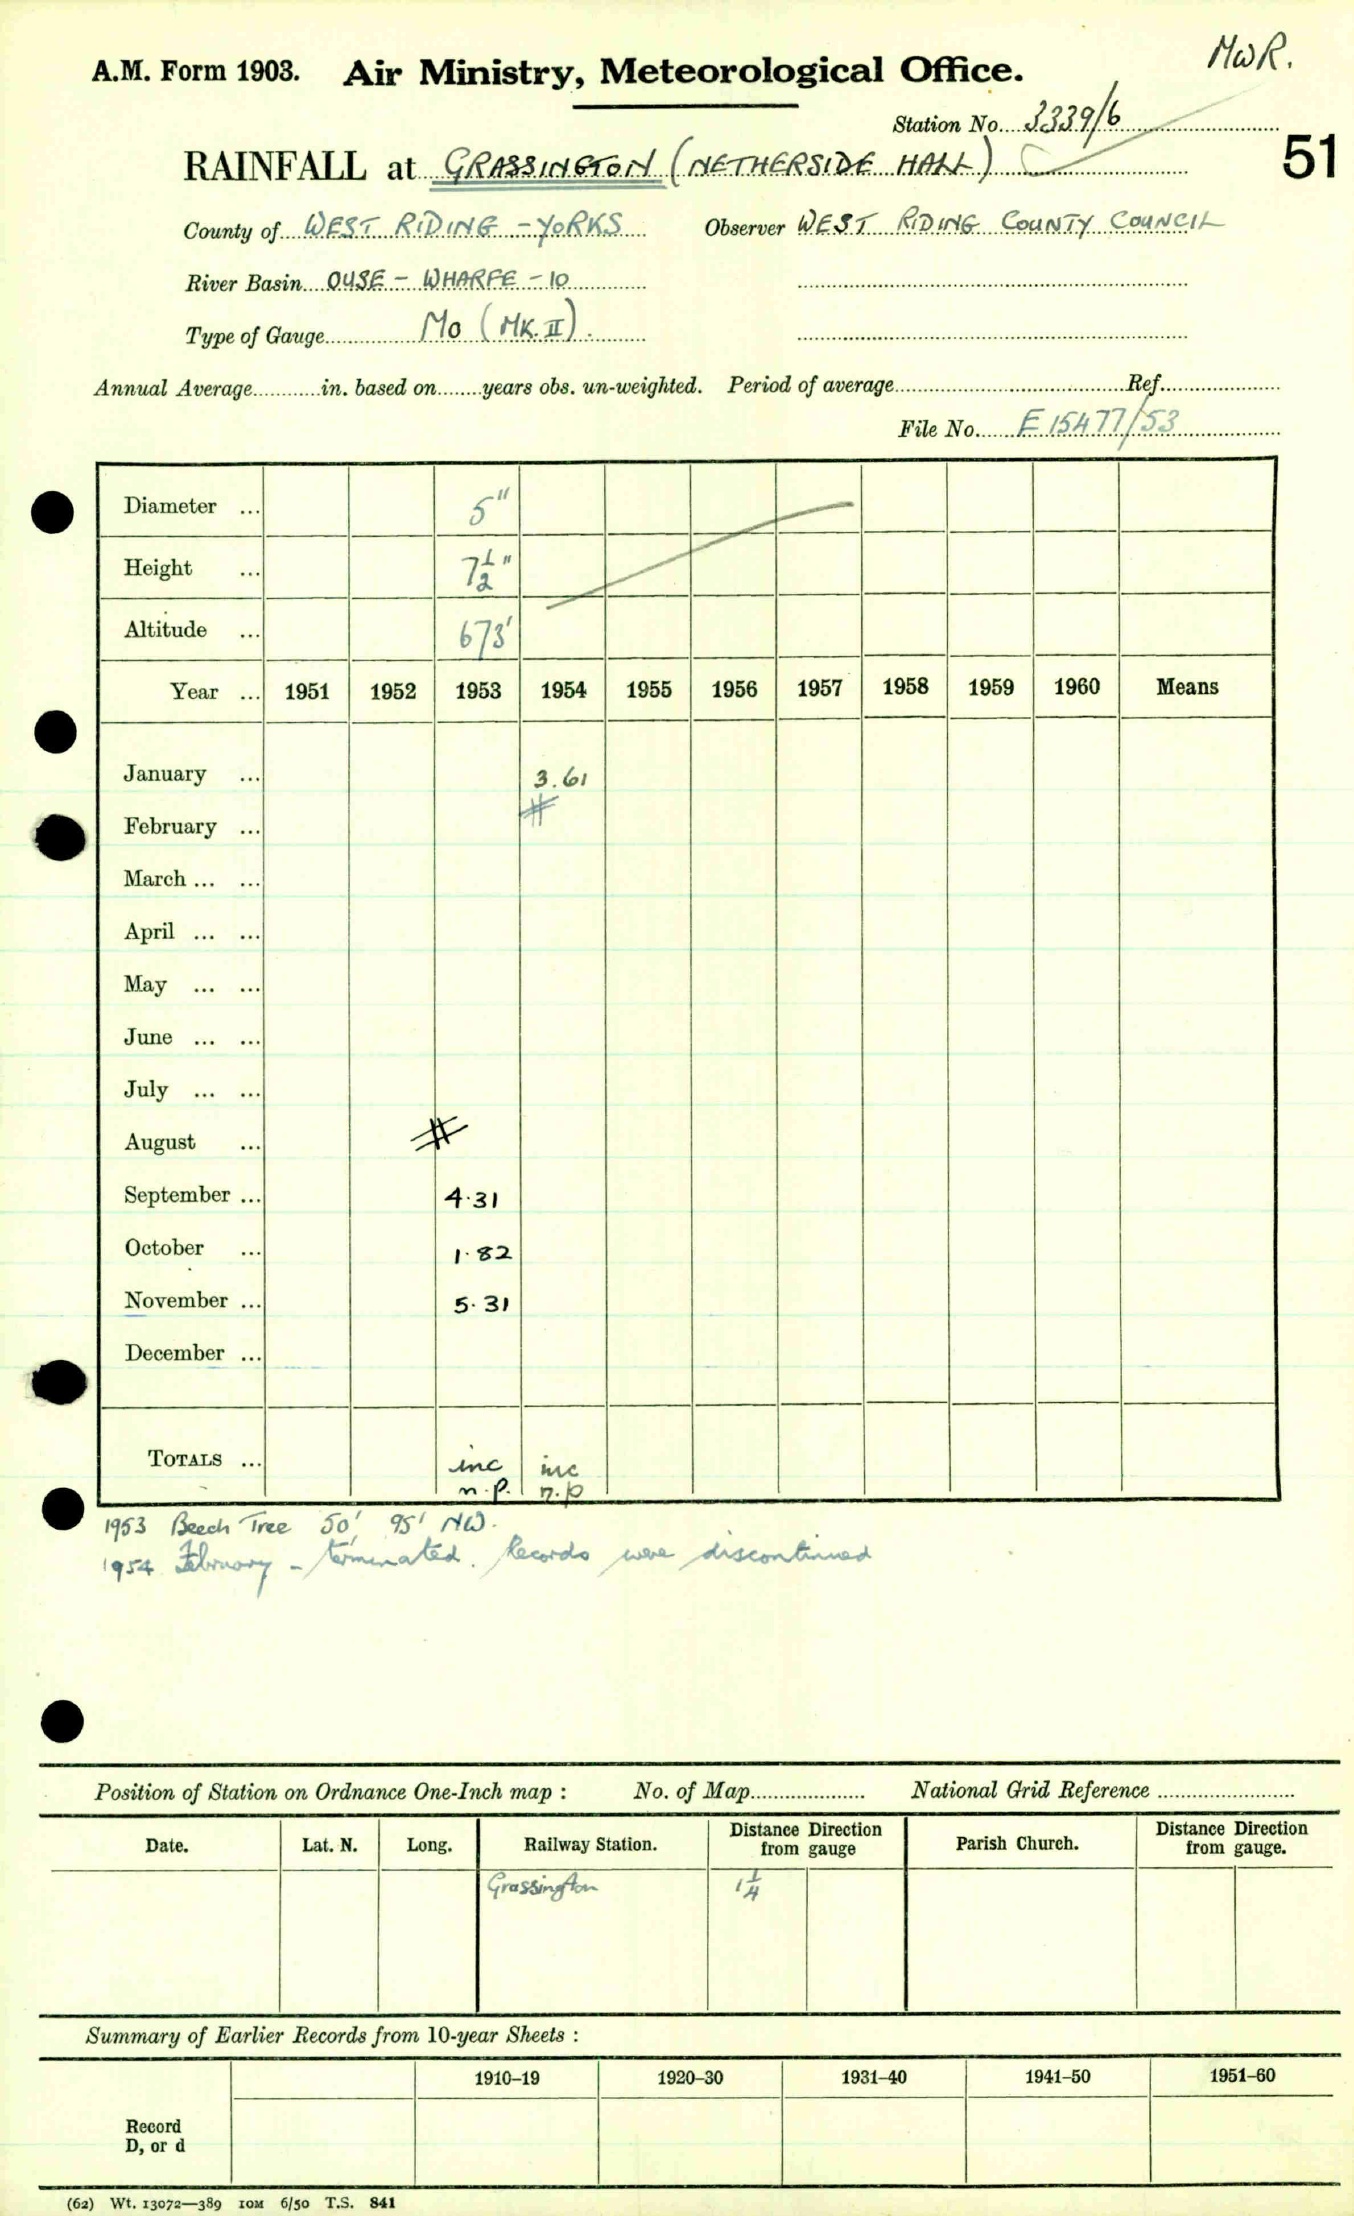 MWR.
A.M. Form 1903. Air Ministry, Meteorological Office.
Station No. 3339/6
RAINFALL at GRASSINGTON (NETHERSIDE HALL)
51
County of WEST RIDING - YORKS Observer WEST RIDING COUNTY COUNCIL
River Basin OUSE - WHARFE - 10
Type of Gauge Mo (MK. II).
Annual Average............in. based on........years obs. un-weighted. Period of average.................... Ref....................
File No. E 15477/53
Diameter ... 5"
Height ... 7½"
Altitude ... 673'
Year ... 1951 1952 1953 1954 1955 1956 1957 1958 1959 1960 Means
January ... 3.61
#
February ...
March ... ...
April ... ...
May ... ...
June ... ...
July ... ...
#
August ...
September ... 4.31
October ... 1.82
November ... 5.31
December ...
TOTALS ... inc inc
n.p. n.p
1953 Beech Tree 50', 95' NW.
1954 February - terminated. Records were discontinued
Position of Station on Ordnance One-Inch map : No. of Map.................... National Grid Reference ........................
Date. Lat. N. Long. Railway Station. Distance Direction from gauge Parish Church. Distance Direction from gauge.
Grassington 1¼
Summary of Earlier Records from 10-year Sheets :
1910–19 1920–30 1931–40 1941–50 1951–60
Record
D, or d
(62) Wt. 13072—389 10M 6/50 T.S. 841